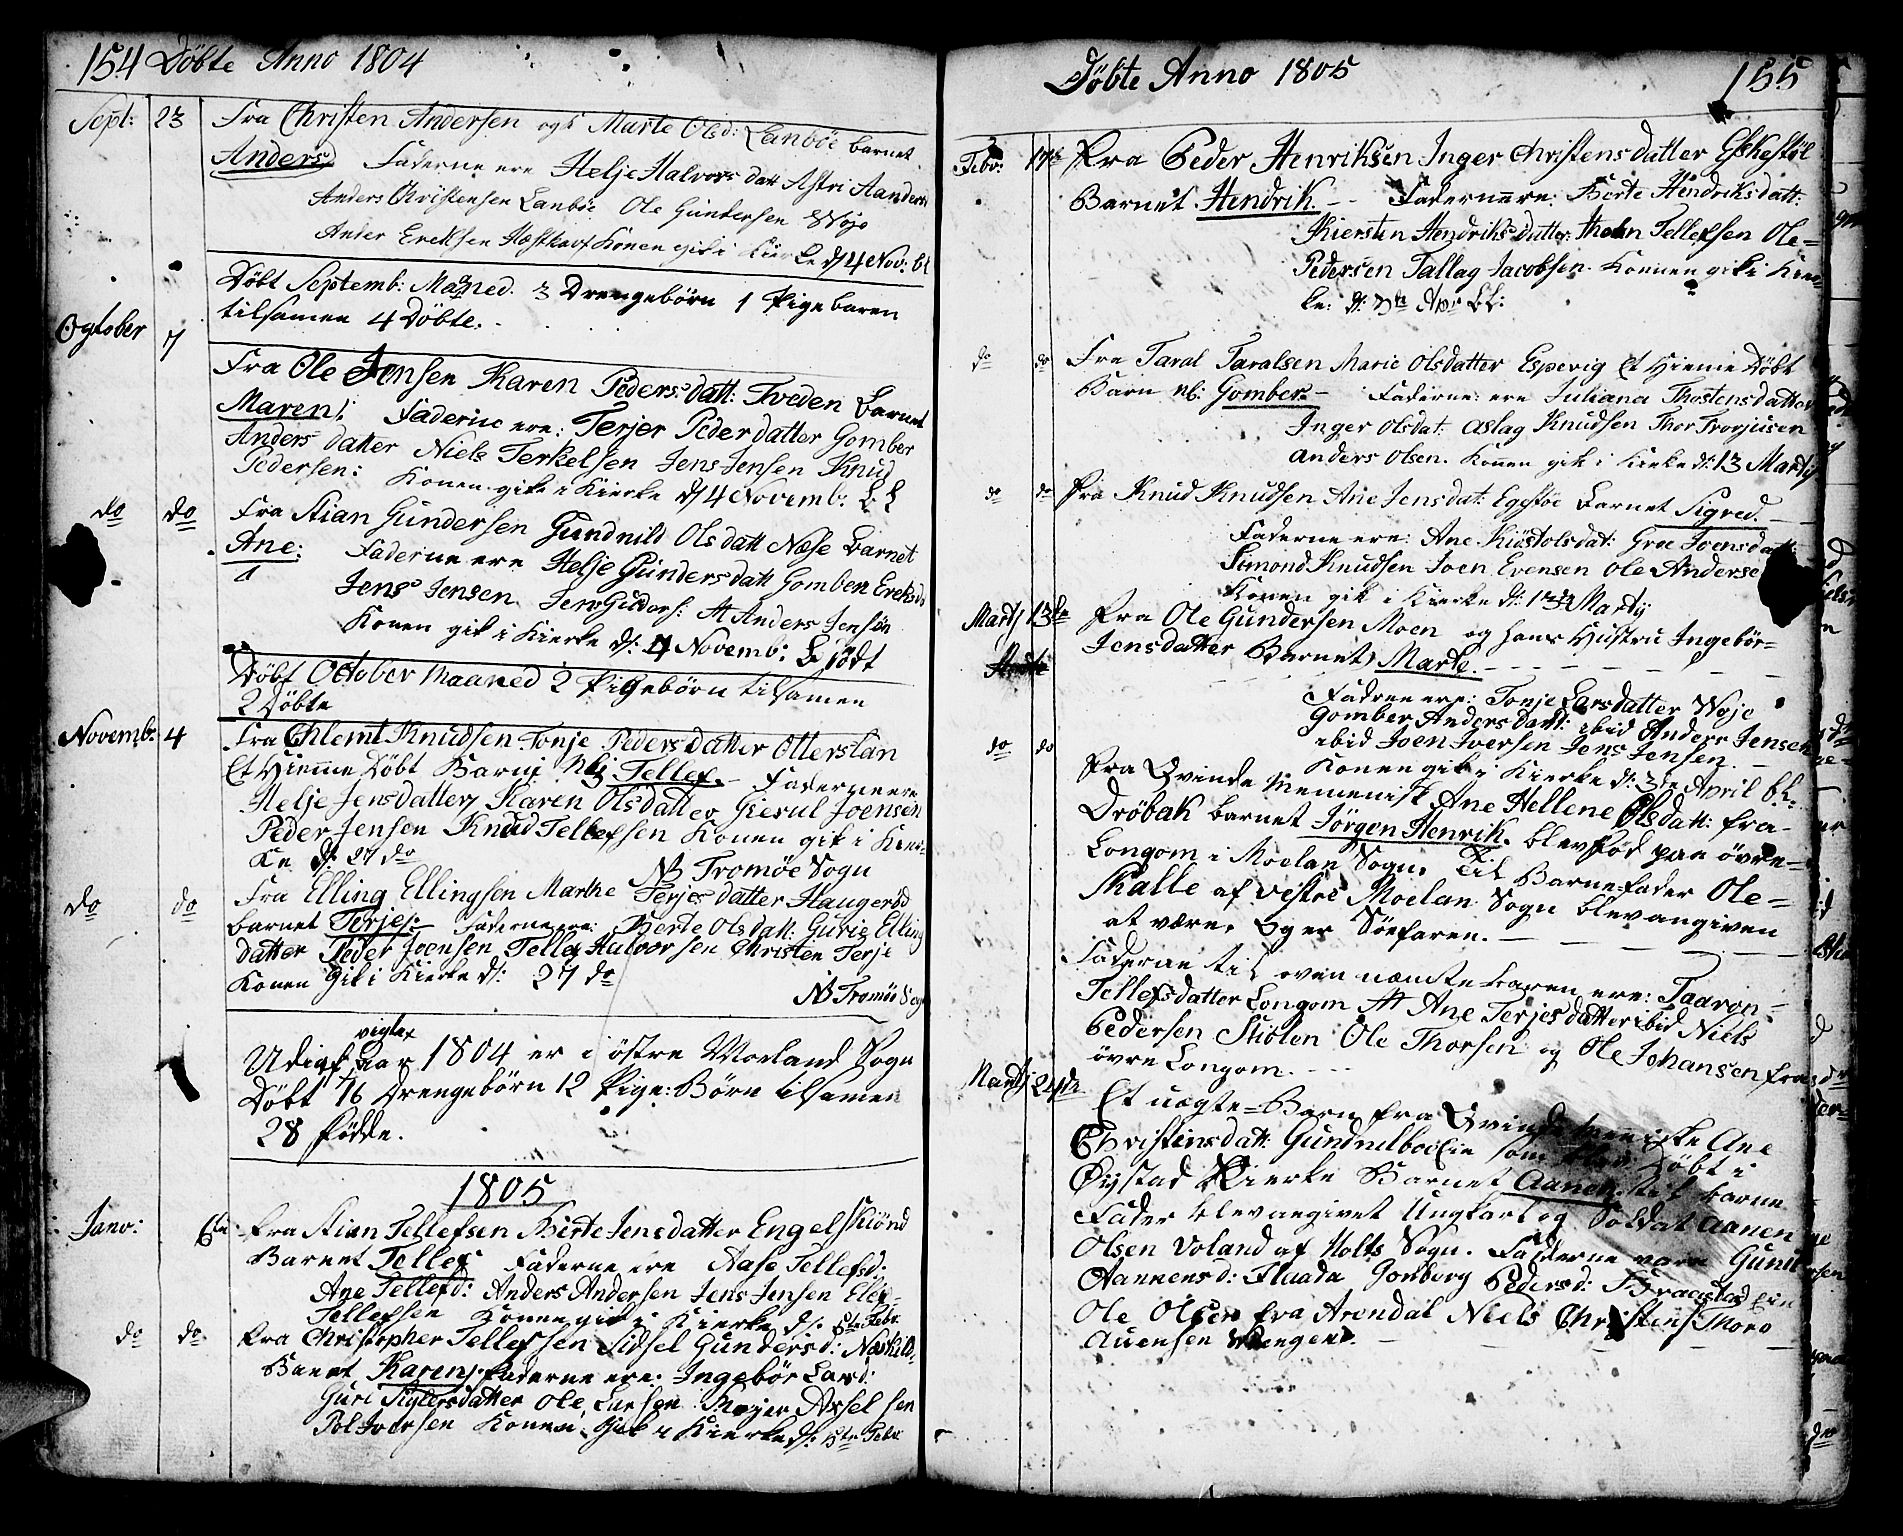 154 Döbte Anno 1804
Sept: 23 Fra Christen Andersen ogs Marte Olsd: Lanböe barnet
Anders Faderne ere Helje Halvors datt Astri Aanders
Anders Christensen Lanböe Ole Gundersen Woje
Ander Ereksen Konen gik i Kierke d/4 Nov: bl
Döbt Septemb: Maaned. 3 Drengebörn 1 Pigebaren
tilsamen 4 Döbte.
Ogtober 7
Fra Ole Jensen Karen Peders: datt: Tveden Barnet
Maren Faderne ere: Terjer Pederdatter Gomber
Anders datter Niels Terkelsen Jens Jensen Knud
Pedersen: Konen gik i Kierke d/4 Novemb:
do do Fra Stian Gundersen Gundnild Olsdatt Næse Barnet
Ane: Faderne ere Helje Gundersdatt Gomben Ereksd
Jens Jensen Jens Gunders: At Anders Jensen
Konen gik i Kierke d: 4 Novemb:
Döbt October Maaned 2 Pigebörn tilsamen
2 Döbte
Novemb: 4 Fra Chlemt Knudsen Tonje Peders datter Otterslan
Et Hieme Döbt Barn Tellef. Faderne ere
Helje Jensdatter Karen Olsdatter Giesul Joensen
Peder Jensen Knud Tellefsen Konen gik i Kier-
ke d: 27 do NB Tromöe Sogn
do do Fra Elling Ellingsen Marthe Terjesdatter Haugeröd
barnet Terjes: Faderne ere: Berte Olsdatt: Gurie Elling
datter Peder Joensen Tellef Halvorsen Christen Terje
Konen Gik i Kierke d: 27 do
NB Tromöe Sogn
vigtet
Udi Aar 1804 er i östre Moeland Sogn
Döbt 16 Drengebörn 12 Pige: Börn tilsamen
28 födde.
1805
Janv: 6te Fra Stian Tellefsen Birte Jensdatter Engelskiönd
Barnet Tellef Faderne ere Aase Tellefsd:
Ane Tellefd: Anders Andersen Jens Jensen Elef
Tellefsen Konen gik i Kierke d: Febr.
do do Fra Christopher Tellefsen Sidsel Gundersd: Næskild
Banet Karen Faderne ere: Ingebör Larsd:
Guri datter Ole Larsen Axelsen
Pol Iversen Konen Gik i Kierke d: Febr
Döbte Anno 1805 155
Febr: 17de Fra Peder Henriksen Inger Christensdatter Eskestöl
Barnet Hendrik. - - Faderne ere: Berte Hendriksdatt:
Kiersten Hendriksdatter Tellefsen Ole=
Pedersen Tallag Jacobsen. Konnen gik i Kier
ke: d:
do do Fra Taral Taralsen Marie Olsdatter Espevig Et Hieme Döbt
Barn Nb: Gomber - Faderne: ere Juliana Thostensdatter
Inger Olsdat: Aslag Knudsen Thor Trorjusen
Anders Olsen. Konen gik i Kierke d: 13 Martÿ
do do Fra Knud Knudsen Ane Jensdat: Egestöe Barnet Sigred.
Faderne ere: Ane Kiöstolsdat: Groe Joensdatt:
Simond Knudsen Joen Evensen Ole Anderse
Konen gik i Kierke d: 13de Martÿ
Martj 13de Fra Ole Gundersen Moen og hans Hustru Ingebör=
Jensdatter Barnet Marte.
Fadrene ere: Tonje Larsdatter Woje
Gomber Andersdatt: ibid Anders Jensen
ibid Joen Iversen Jens Jensen.
Konen gik i Kierke d: 3de April bl.
do do Fra Qvinde Memenisk Ane Hellene Olsdatt: fra-
Dröbak barnet Jörgen Henrik. blev föd paa övre=
Longom i Moelan Sogn. Til Barne=fader Ole=
Kalle af Vestre Moelan Sogn blev angiven
at være. Og er Söefaren.
Faderne til oven næmte baren ere: Taaron
Tellefsdatter Longom At Ane Terjesdatter ibid Niels
Pedersen Skiölen Ole Thorsen og Ole Johansen fra
övre Longom.
Martj 24de Et uægte=Barn fra Qvinde Ane
Christinsdatt: som blev Döbt i
Öystad Kierke Barnet Aanen til Barne
Fader blev angivet Ungkarl og Soldat Aanen
Olsen Voland af Holts Sogn. Faderne vare Gunil
Aannensd: Flaada Gonborg Pedersd: Braastad
Ole Olsen fra Arendal Niels Christens: Thoro
Auensen Wængene.